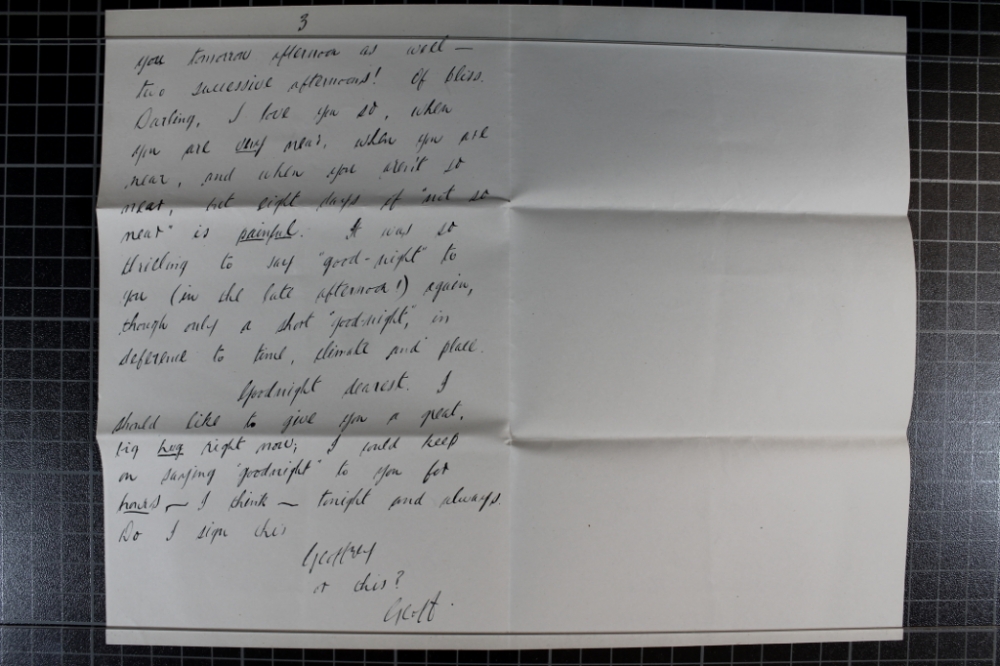 3
you tomorrow afternoon as well —
two successive afternoons! Of bliss.
Darling, I love you so, when
you are very near, when you are
near, and when you aren't so
near, but eight days of "not so
near" is painful. It was so
thrilling to say "good-night" to
you (in the late afternoon!) again,
though only a short "good-night", in
deference to time, climate and place.
Goodnight dearest. I
should like to give you a great,
big hug right now; I could keep
on saying "goodnight" to you for
hours — I think — tonight and always.
Do I sign this
Geoffrey
or this?
Geoff.